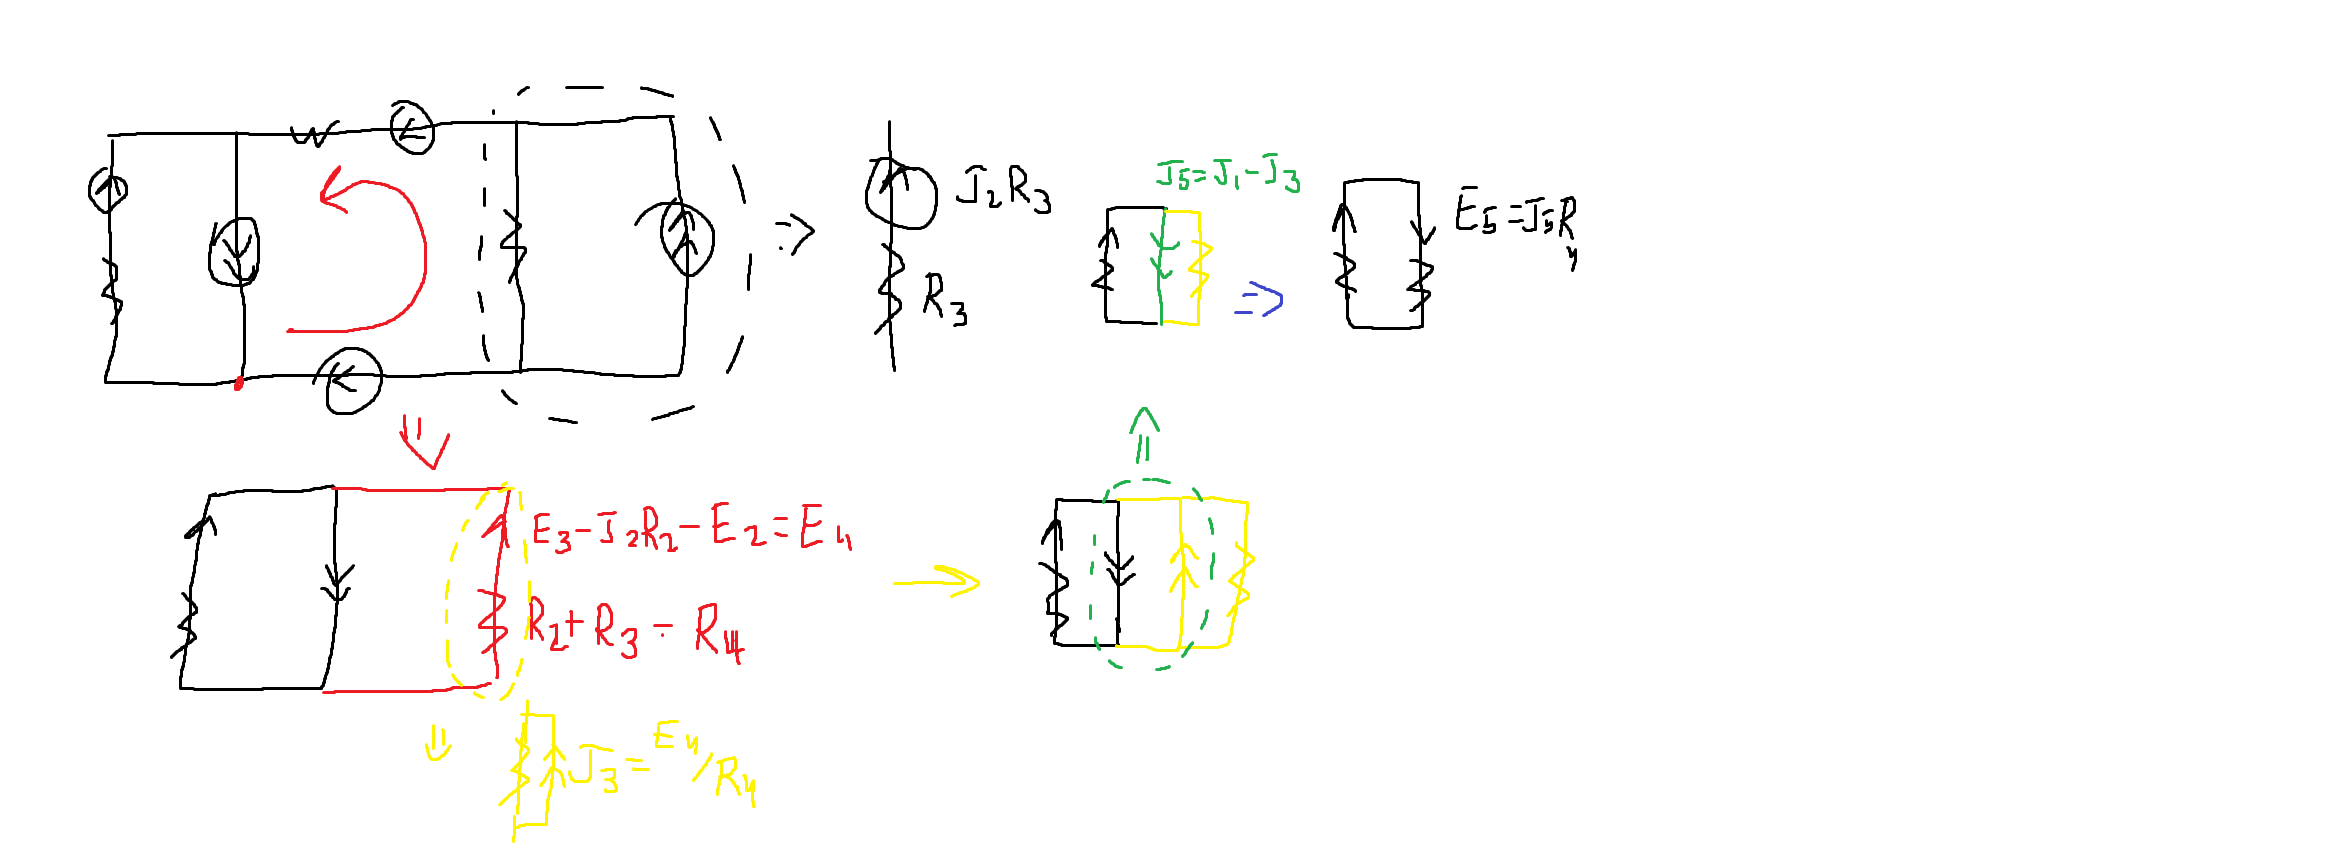 J2R3
R3
J5=J1-J3
E5=J5R4
E3-J2R2-E2=E4
R2+R3=R4
J3=E4/R4